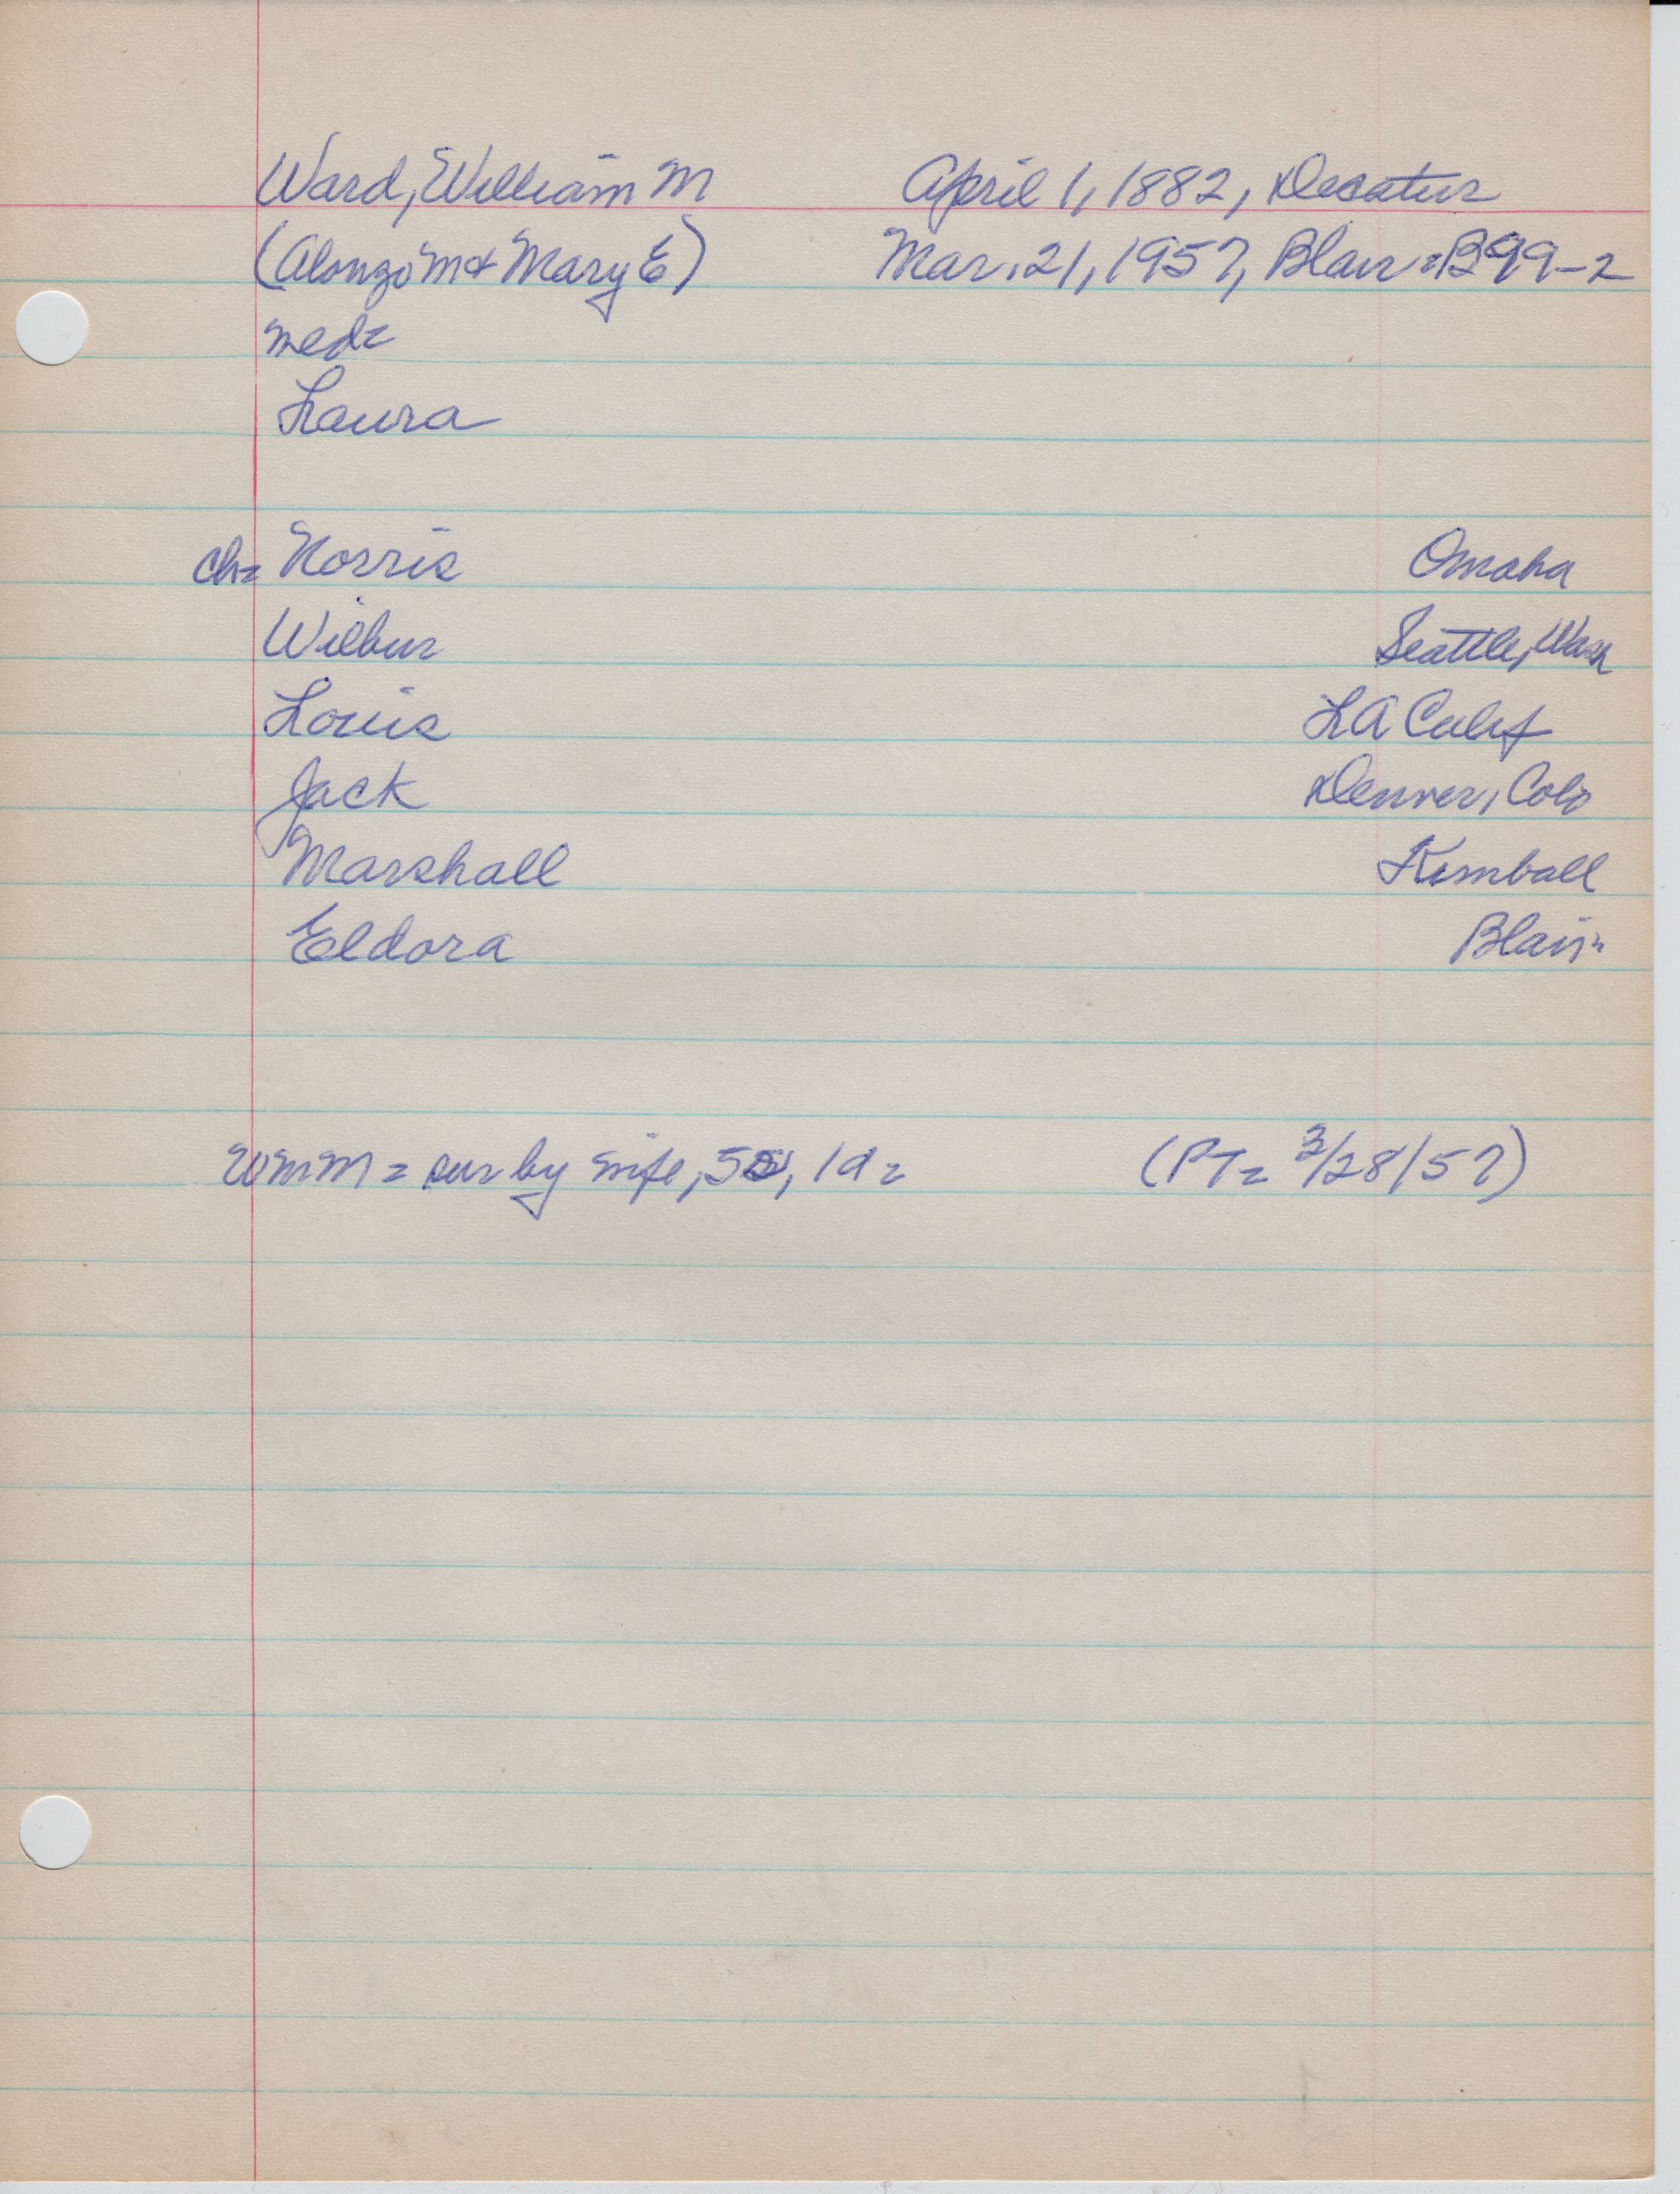 Ward, William M April 1, 1882, Decatur
(Alonzo M & Mary E) Mar. 21, 1957, Blair = B99-2
med=
Laura
ch= Norris Omaha
Wilbur Seattle, Wash
Louis LA Calif
Jack Denver, Colo
Marshall Kimball
Eldora Blair=
WmM = sur by wife, 5s, 1d= (PT= 3/28/57)